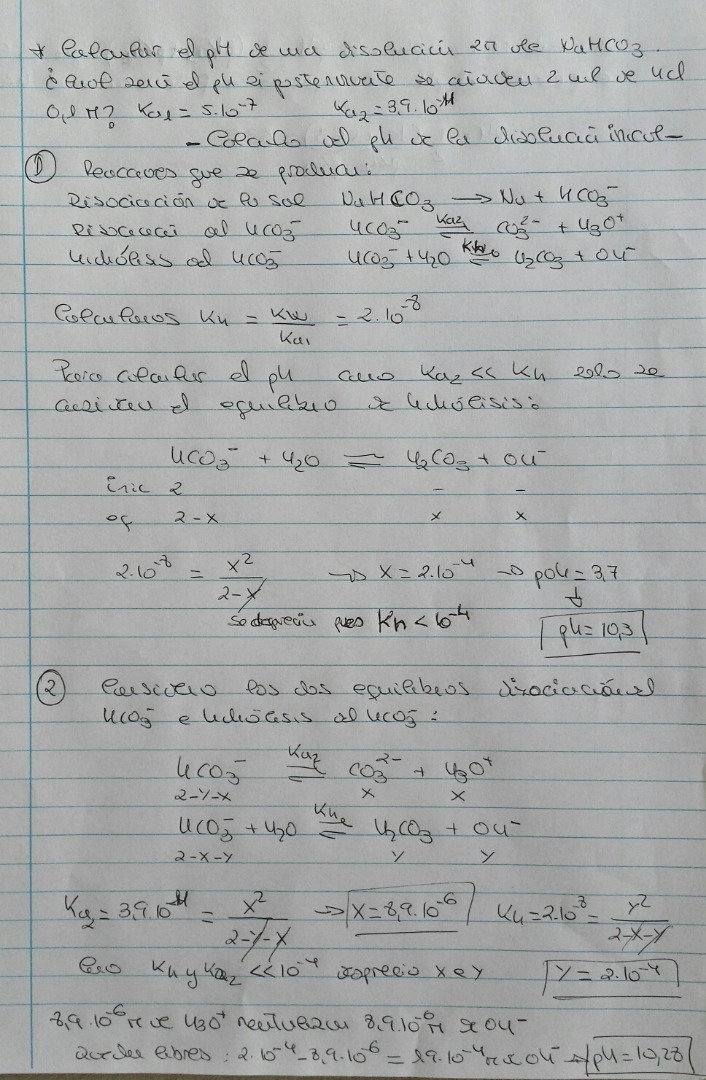 * Calcular el pH de una disolución 2M de NaHCO3.
¿Cuál será el pH si posteriormente se añaden 2 ml de HCl
0,1 M? Ka1 = 5.10^-7 Ka2 = 3,9.10^-11
- Cálculo del pH de la disolución inicial -
① Reacciones que se producen:
Disociación de la sal NaHCO3 → Na + HCO3^-
Disociación del HCO3^- HCO3^- ⇌ Ka2 CO3^2- + H3O^+
Hidrólisis del HCO3^- HCO3^- + H2O ⇌ H2CO3 + OH^-
Calculamos Kh = Kw/Ka1 = 2.10^-8
Para calcular el pH como Ka2 << Kh solo se
considera el equilibrio de hidrólisis:
HCO3^- + H2O ⇌ H2CO3 + OH^-
Inic 2 - -
eq 2-x x x
2.10^-8 = x^2/(2-x) → x = 2.10^-4 → pOH = 3,7
Se desprecia pues Kh < 10^-4
↓
pH = 10,3
② Considero los dos equilibrios disociación del
HCO3^- e hidrólisis del HCO3^- :
HCO3^- ⇌ Ka2 CO3^2- + H3O^+
2-y-x x x
HCO3^- + H2O ⇌ H2CO3 + OH^-
2-x-y y y
Ka2 = 3,9.10^-11 = x^2/(2-y-x) → x = 8,9.10^-6 Kh = 2.10^-8 = y^2/(2-x-y)
Pero Kh y Ka2 << 10^-4 desprecio x e y y = 2.10^-4
8,9.10^-6 M de H3O^+ neutralizan 8,9.10^-6 M de OH^-
quedan libres : 2.10^-4 - 8,9.10^-6 = 1,9.10^-4 M de OH^- → pH = 10,28